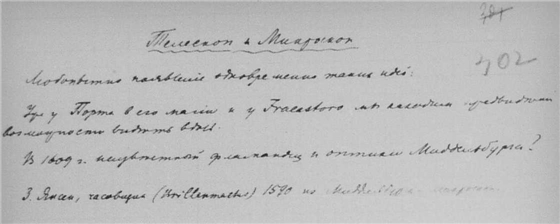 402
Телескоп и Микроскоп
Любопытно появление одновременно таких идей:
Уже у Порта в его магии и у Fracastoro мы находим предвидение
возможности видеть вдаль
В 1609 г. неизвестный фламандец и оптики Миддельбурга?
З. Янсен, часовщик (Brillenmacher) 1590 по